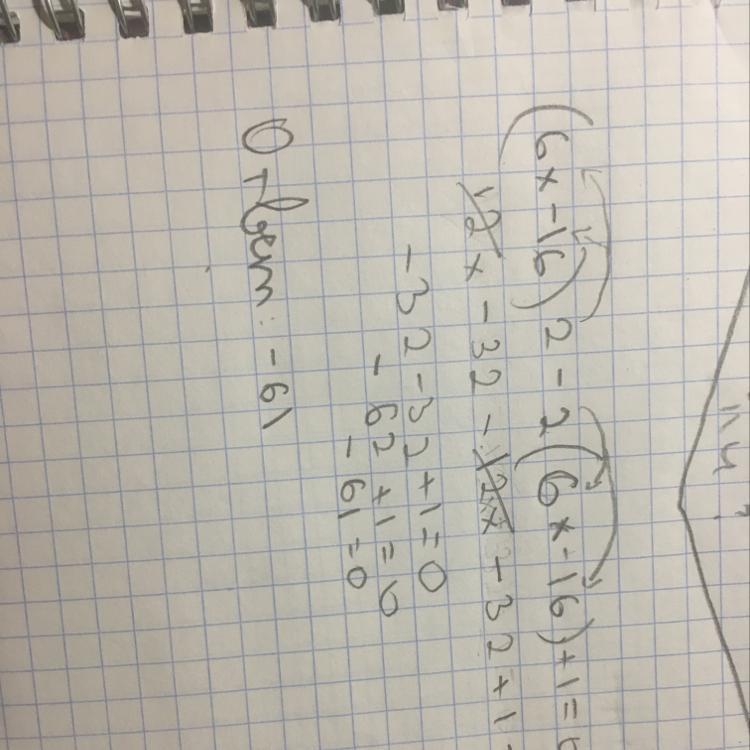 (6x-16)2-2(6x-16)+1=
12x-32-12x-32+1
-32-32+1=0
-62+1=0
-61=0
Ответ: -61